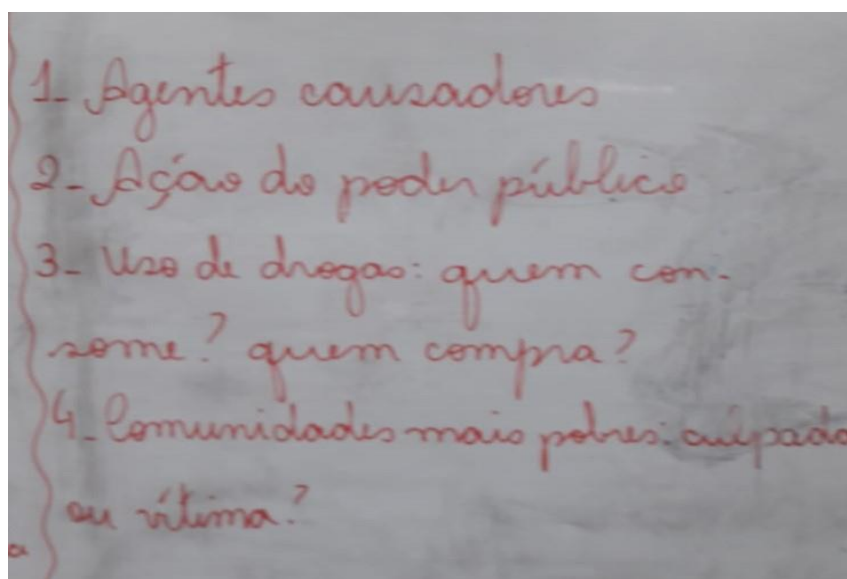 1- Agentes causadores
2- Ação do poder público
3- Uso de drogas: quem con-
some? quem compra?
4- Comunidades mais pobres: culpado
ou vítima?
a